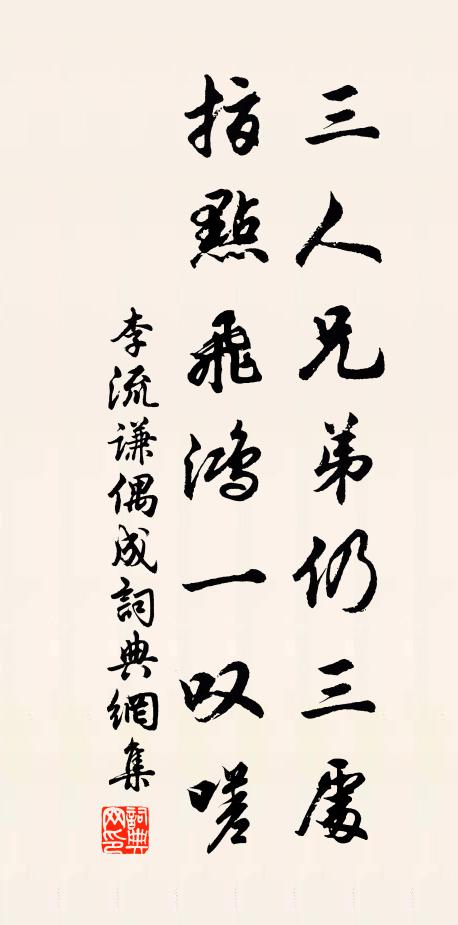 三人兄弟仍三處
指點飛鴻一叹嗟
李流谦偶成詞典網集
詞典网印